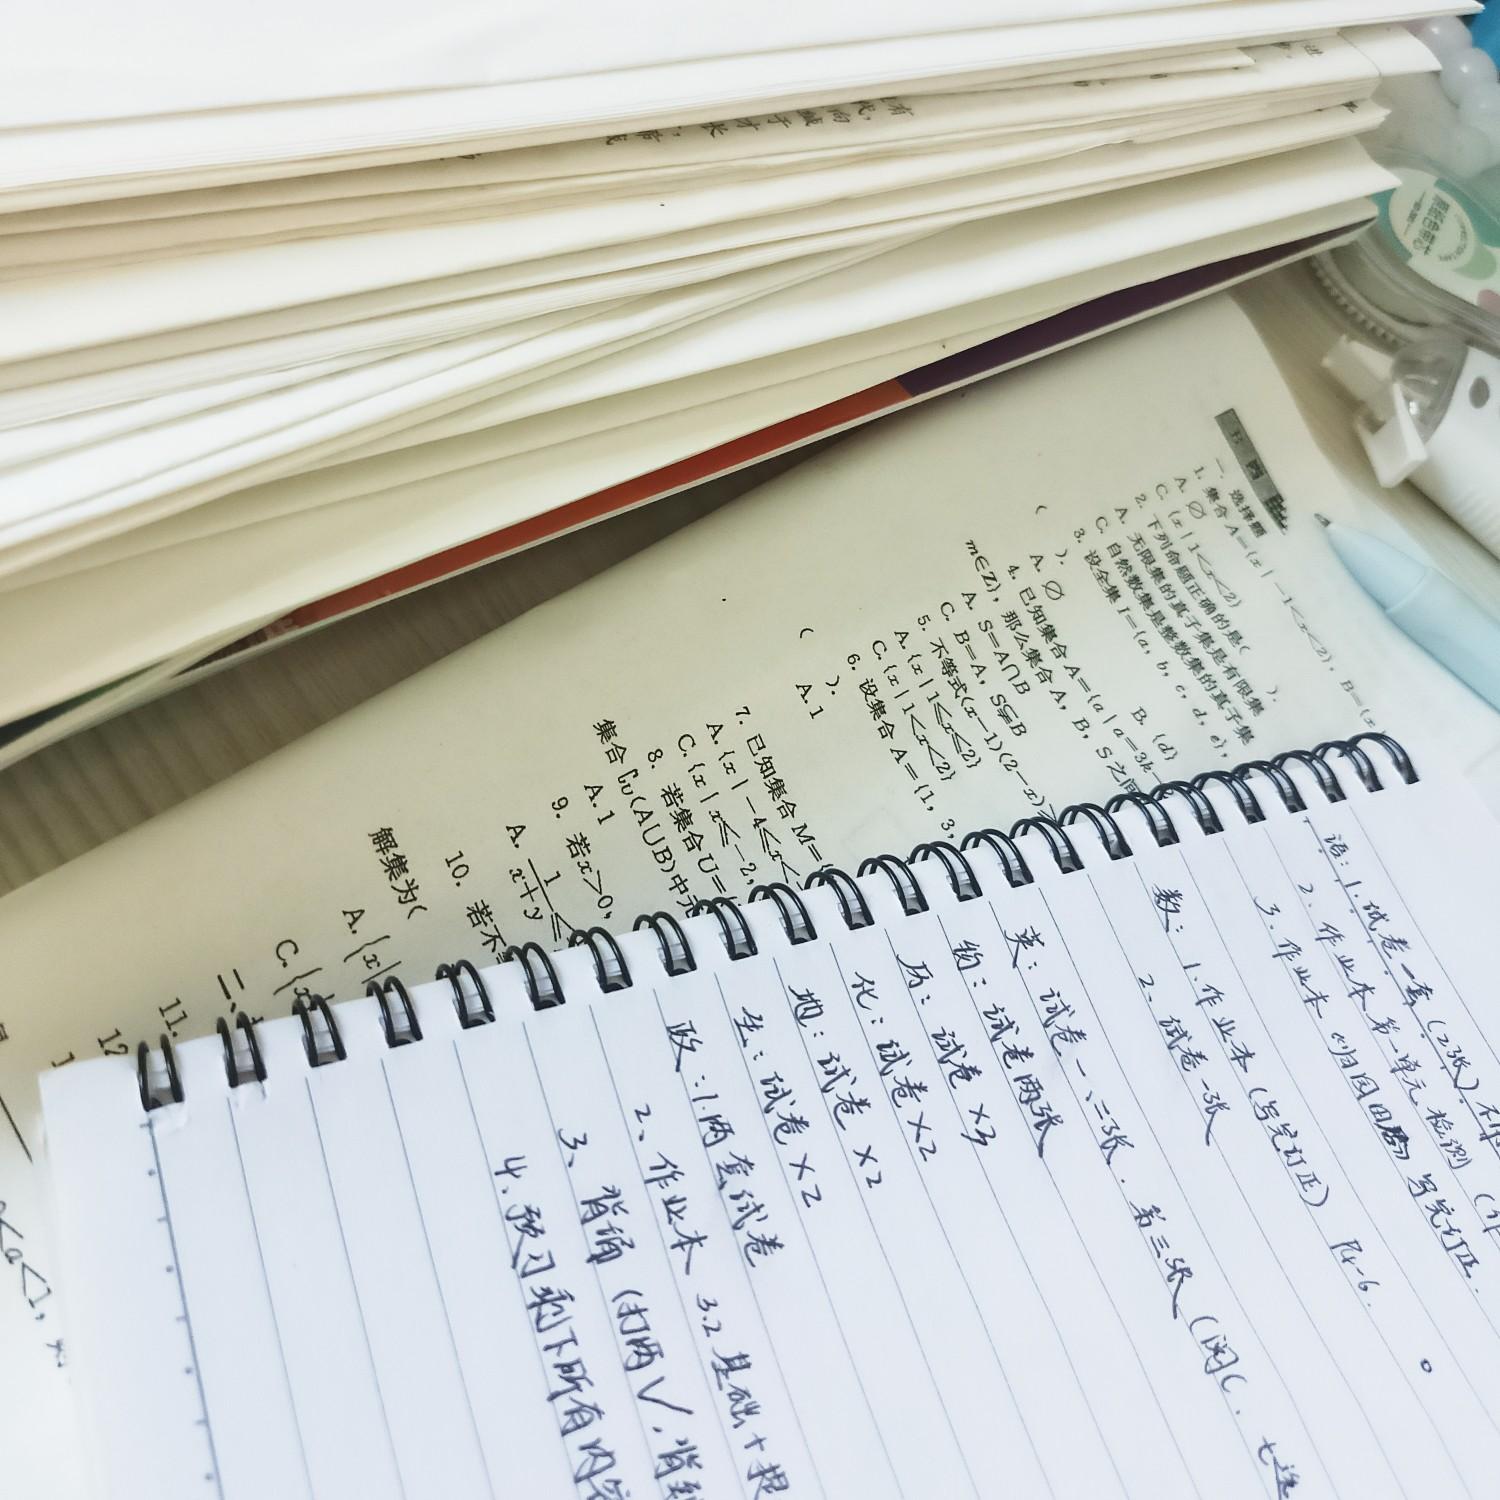 一、选择题
1. 集合 A={x|-1<x<2}, B={x
A. ∅
C. {x|1<x<2}
2. 下列命题正确的是( ).
A. 无限集的真子集是有限集
C. 自然数集是整数集的真子集
3. 设全集 I={a, b, c, d, e},
( ).
A. ∅ B. {d}
4. 已知集合 A={a|a=3k-
m∈Z}, 那么集合 A, B, S之间
A. S=A∩B
C. B=A, S⫋B
5. 不等式(x-1)(2-x)
A. {x|1≤x≤2}
C. {x|1<x<2}
6. 设集合 A={1, 3,
( ).
A. 1
7. 已知集合 M={
A. {x|-4≤x<
C. {x|x≤-2,
8. 若集合 U={
集合 ∁U(A∪B)中元
A. 1
9. 若x>0,
A. 1/x+y≤
10. 若不
解集为(
A. {x|
C. {x
二、
11.
12
<a<1,
语: 1.试卷一套 (2张)
2. 作业本第一单元检测 (
3. 作业本 归园田居 写完订正.
数: 1.作业本 (写完订正) P4-6.
2. 试卷一张
英: 试卷一、二张. 第三张 (阅C. 七选
物: 试卷两张
历: 试卷 ×3
化: 试卷 ×2
地: 试卷 ×2
生: 试卷 ×2
政: 1.两套试卷
2、作业本 3.2 基础+提
3、背诵 (打两√, 背
4. 预习剩下所有内容